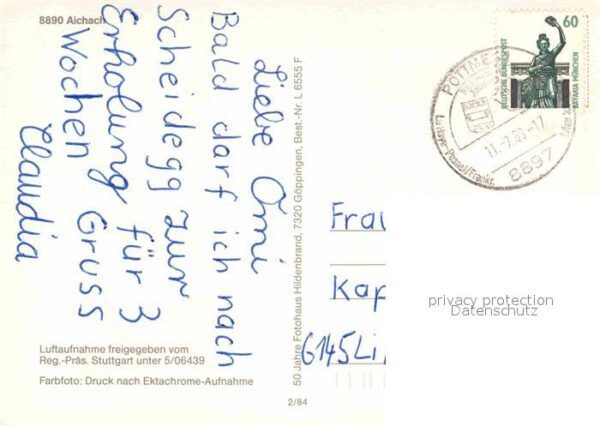 8890 Aichach
Liebe Omi
Bald darf ich nach
Scheidegg zur
Erholung für 3
Wochen Gruss
Claudia
Luftaufnahme freigegeben vom
Reg.-Präs. Stuttgart unter 5/06439
Farbfoto: Druck nach Ektachrome-Aufnahme
50 Jahre Fotohaus Hildenbrand, 7320 Göppingen, Best.-Nr. L 6555 F
2/84
60
DEUTSCHE BUNDESPOST
BAVARIA MÜNCHEN
8897
Frau
Kap
6145 Li
privacy protection
Datenschutz